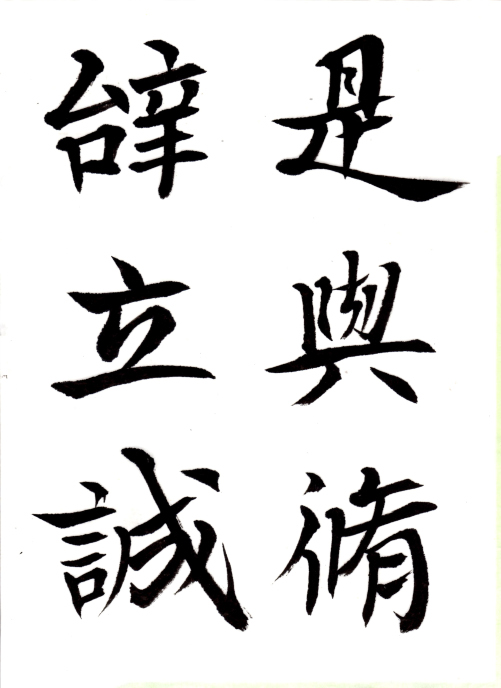 是與脩
辝立誠